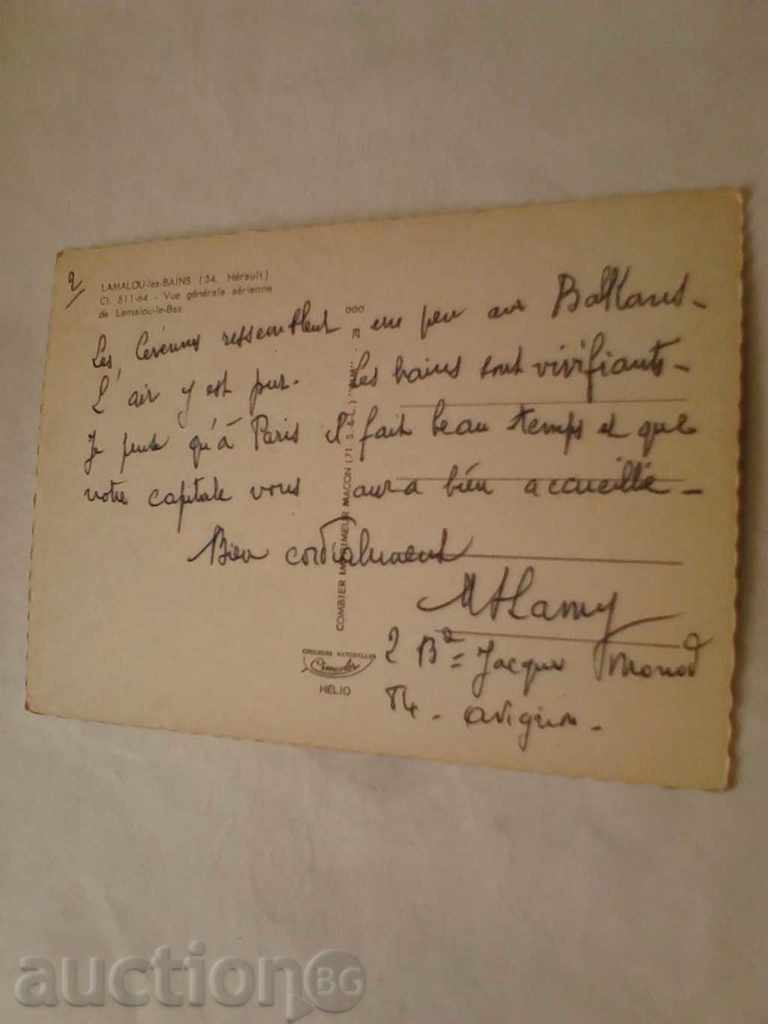 2/
LAMALOU-les-BAINS (34. Hérault)
Cl. 511-64 - Vue générale aérienne
de Lamalou-le-Bas
Les Cévennes ressemblent un peu aux Balkans -
L'air y est pur. Les bains sont vivifiants -
Je pense qu'à Paris il fait beau temps et que
notre capitale vous aura bien accueillie -
Bien cordialement
MHLamy
2 Bd Jacques Monod
84 - Avignon -
COMBIER IMPRIMEUR MACON (71. S.-&-L.)
COULEURS NATURELLES
Cimcolor
HÉLIO
auctionBG